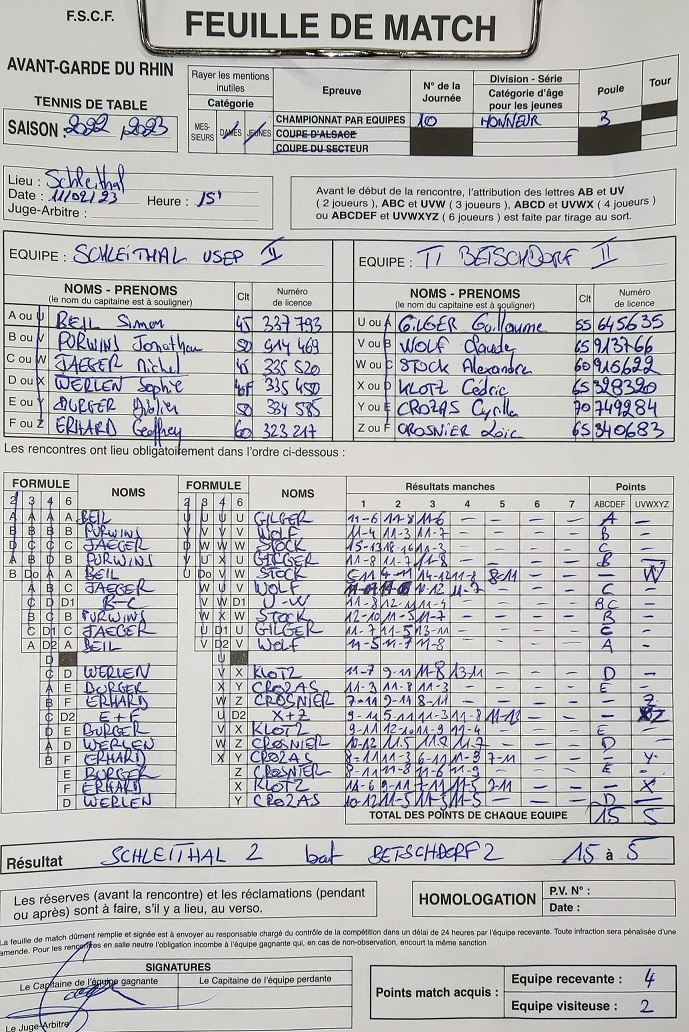 F.S.C.F.
FEUILLE DE MATCH
AVANT-GARDE DU RHIN
TENNIS DE TABLE
SAISON : 2022 / 2023
Rayer les mentions inutiles
Catégorie
MES-SIEURS DAMES JEUNES
Epreuve
CHAMPIONNAT PAR EQUIPES
COUPE D'ALSACE
COUPE DU SECTEUR
N° de la Journée
10
Division - Série
Catégorie d'âge pour les jeunes
HONNEUR
Poule
3
Tour
Lieu : Schleithal
Date : 11/02/23 Heure : 15h
Juge-Arbitre :
Avant le début de la rencontre, l'attribution des lettres AB et UV
( 2 joueurs ), ABC et UVW ( 3 joueurs ), ABCD et UVWX ( 4 joueurs )
ou ABCDEF et UVWXYZ ( 6 joueurs ) est faite par tirage au sort.
EQUIPE : SCHLEITHAL USEP II
EQUIPE : TT BETSCHDORF II
NOMS - PRENOMS (le nom du capitaine est à souligner) Clt Numéro de licence
A ou U BEIL Simon 45 337 793
B ou V PURWINS Jonathan 50 914 469
C ou W JAEGER Michel 45 335 520
D ou X WERLEN Sophie 335 450
E ou Y BURGER 50 334 585
F ou Z ERHARD Geoffrey 60 323 217
NOMS - PRENOMS (le nom du capitaine est à souligner) Clt Numéro de licence
U ou A GILGER Guillaume 55 645635
V ou B WOLF Claude 65 913766
W ou C STOCK Alexandre 60 915622
X ou D KLOTZ Cédric 65 328320
Y ou E CROZAS Cyrille 70 749284
Z ou F CROSNIER Loïc 65 340683
Les rencontres ont lieu obligatoirement dans l'ordre ci-dessous :
FORMULE NOMS FORMULE NOMS Résultats manches Points
2 3 4 6 2 3 4 6 1 2 3 4 5 6 7 ABCDEF UVWXYZ
A A A A BEIL U U U U GILGER 11-6 11-8 11-6 – – – – A –
B B B B PURWINS V V V V WOLF 11-4 11-3 11-7 – – – – B –
C C JAEGER W W W STOCK 15-13 18-16 11-3 – – – – C –
PURWINS U X U GILGER 11-8 11-7 11-8 – – – – B –
B Do A A BEIL U Do V W STOCK 4-11 14-12 11-8 8-11 – – – W
A B C JAEGER V W U WOLF 10-12 11-7 – – – C –
C D D1 B-C V W D1 U-W 11-8 12-11 11-4 – – – – BC –
B C B PURWINS W X W STOCK 12-10 11-5 11-7 – – – – B –
C D1 C JAEGER U D1 U GILGER 11-7 11-5 13-11 – – – – C –
A D2 A BEIL V D2 V WOLF 11-5 11-7 11-8 – – – – A –
D U
C D WERLEN V X KLOTZ 11-7 9-11 11-8 13-11 – – – D –
A E BURGER X Y CROZAS 11-3 11-8 11-3 – – – – E –
B F ERHARD W Z CROSNIER 7-11 9-11 8-11 – – – – – Z
C D2 E+F U D2 X+Z 9-11 5-11 11-3 11-8 – – XZ
D E BURGER V X KLOTZ 9-11 11-9 – – – E –
A D WERLEN W Z CROSNIER 10-12 11-5 11-7 11-7 – – – D –
B F ERHARD X Y CROZAS 8-11 11-3 6-11 11-3 7-11 – – – Y
E BURGER Z CROSNIER 8-11 11-8 11-6 11-9 – – – E –
F ERHARD X KLOTZ 9-11 7-11 11-5 – – – X
D WERLEN Y CROZAS 10-12 11-5 11-3 11-5 – – – D –
TOTAL DES POINTS DE CHAQUE EQUIPE 15 5
Résultat SCHLEITHAL 2 bat BETSCHDORF 2 15 à 5
Les réserves (avant la rencontre) et les réclamations (pendant
ou après) sont à faire, s'il y a lieu, au verso.
HOMOLOGATION
P.V. N° :
Date :
La feuille de match dûment remplie et signée est à envoyer au responsable chargé du contrôle de la compétition dans un délai de 24 heures par l'équipe recevante. Toute infraction sera pénalisée d'une
amende. Pour les rencontres en salle neutre l'obligation incombe à l'équipe gagnante qui, en cas de non-observation, encourt la même sanction
SIGNATURES
Le Capitaine de l'équipe gagnante
Le Capitaine de l'équipe perdante
Le Juge-Arbitre
Points match acquis :
Equipe recevante : 4
Equipe visiteuse : 2